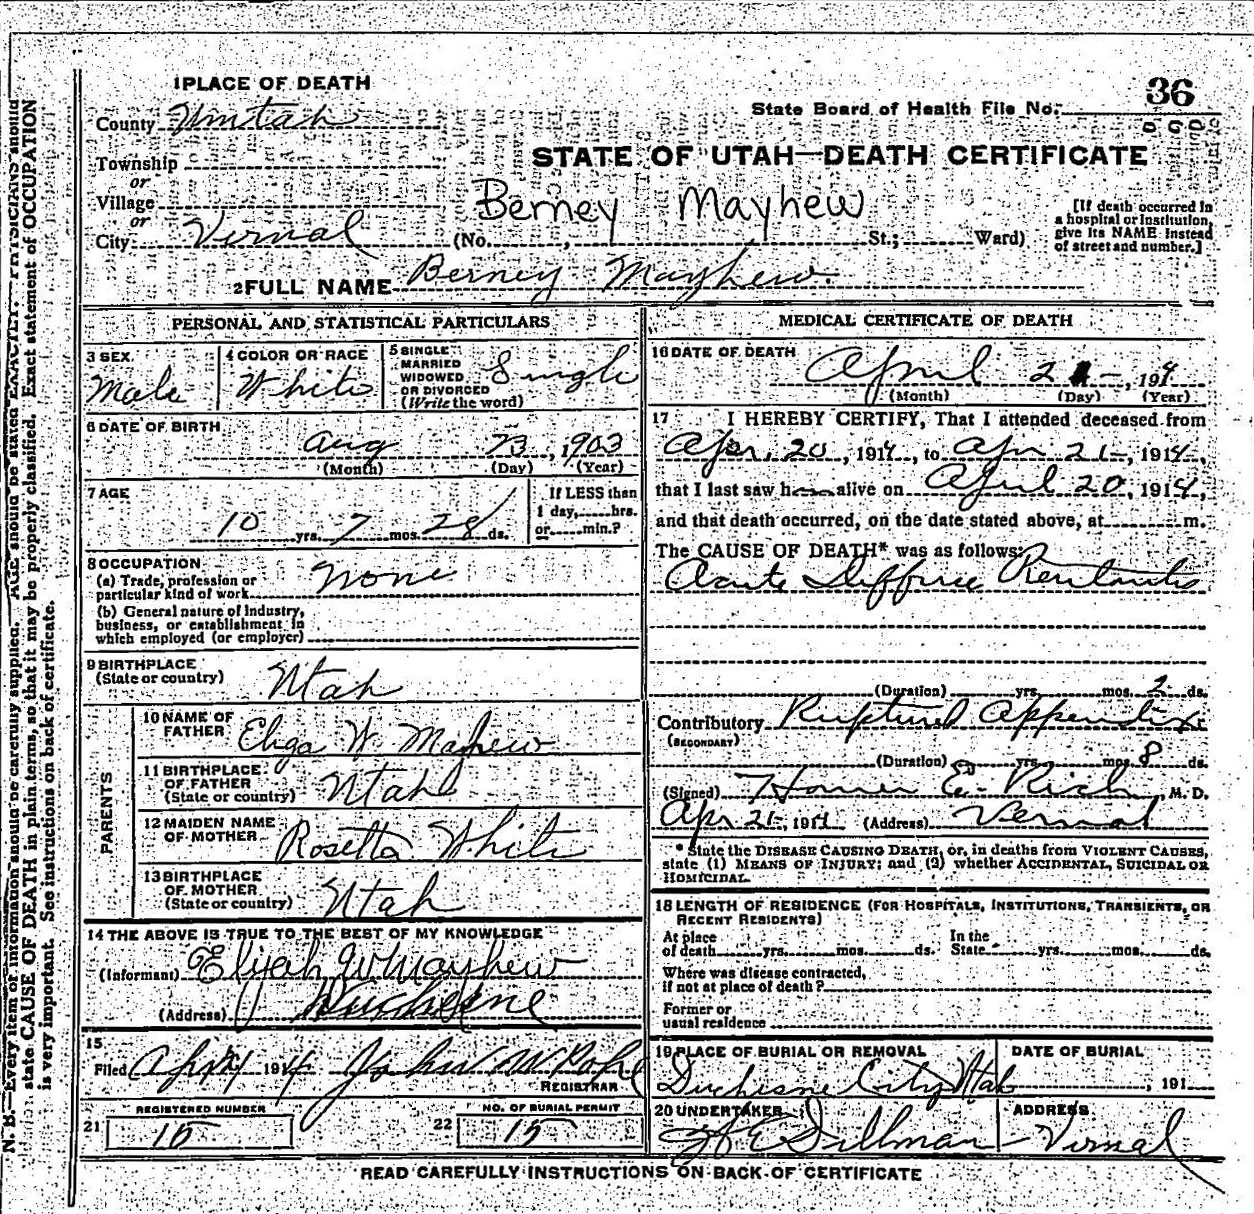 1 PLACE OF DEATH
County Uintah
Township
or
Village
or
City Vernal
State Board of Health File No. 36
STATE OF UTAH—DEATH CERTIFICATE
Berney Mayhew
(No. , St.; Ward)
[If death occurred in
a hospital or institution,
give its NAME instead
of street and number.]
2 FULL NAME Berney Mayhew.
PERSONAL AND STATISTICAL PARTICULARS
3 SEX
Male
4 COLOR OR RACE
White
5 SINGLE
MARRIED
WIDOWED
OR DIVORCED
(Write the word)
Single
6 DATE OF BIRTH
Aug 23, 1903
(Month) (Day) (Year)
7 AGE
10 yrs. 7 mos. 28 ds.
If LESS than
1 day, hrs.
or min.?
8 OCCUPATION
(a) Trade, profession or
particular kind of work None
(b) General nature of Industry,
business, or establishment in
which employed (or employer)
9 BIRTHPLACE
(State or country)
Utah
PARENTS
10 NAME OF
FATHER
Eliga W. Mayhew
11 BIRTHPLACE
OF FATHER
(State or country)
Utah
12 MAIDEN NAME
OF MOTHER
Rosetta White
13 BIRTHPLACE
OF MOTHER
(State or country)
Utah
14 THE ABOVE IS TRUE TO THE BEST OF MY KNOWLEDGE
(Informant) Elijah W Mayhew
(Address) Duchesne
15
Filed April 1914 John W
REGISTRAR
REGISTERED NUMBER
21 15
NO. OF BURIAL PERMIT
22 15
MEDICAL CERTIFICATE OF DEATH
16 DATE OF DEATH
April 21, 1914
(Month) (Day) (Year)
17 I HEREBY CERTIFY, That I attended deceased from
Apr. 20, 1914, to Apr 21, 1914,
that I last saw h alive on April 20, 1914,
and that death occurred, on the date stated above, at m.
The CAUSE OF DEATH* was as follows:
Acute Diffuse Peritonitis
(Duration) yrs. mos. 2 ds.
Contributory Ruptured Appendix
(SECONDARY)
(Duration) yrs. mos. 8 ds.
(Signed) Homer E. Rich, M. D.
Apr 21, 1914 (Address) Vernal
* State the DISEASE CAUSING DEATH, or, in deaths from VIOLENT CAUSES,
state (1) MEANS OF INJURY; and (2) whether ACCIDENTAL, SUICIDAL OR
HOMICIDAL.
18 LENGTH OF RESIDENCE (FOR HOSPITALS, INSTITUTIONS, TRANSIENTS, OR
RECENT RESIDENTS)
At place
of death yrs. mos. ds.
In the
State yrs. mos. ds.
Where was disease contracted,
if not at place of death?
Former or
usual residence
19 PLACE OF BURIAL OR REMOVAL
Duchesne City Utah
DATE OF BURIAL
, 191
20 UNDERTAKER
Dillman
ADDRESS
Vernal
READ CAREFULLY INSTRUCTIONS ON BACK OF CERTIFICATE
N. B.—Every item of information should be carefully supplied. AGE should be stated EXACTLY. PHYSICIANS should
state CAUSE OF DEATH in plain terms, so that it may be properly classified. Exact statement of OCCUPATION
is very important. See instructions on back of certificate.